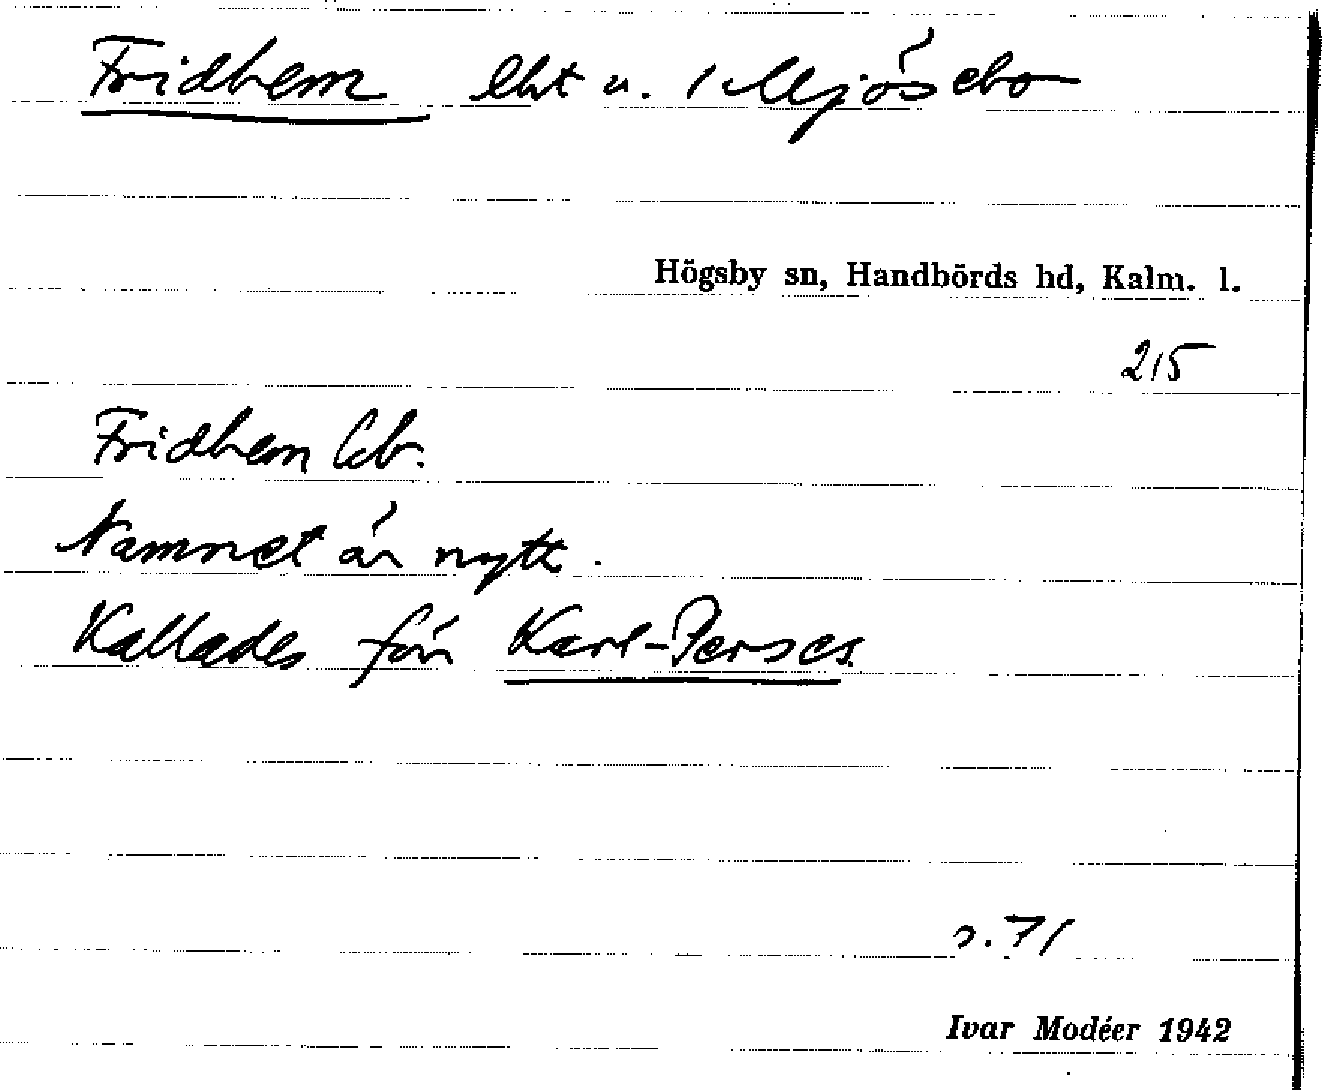 Fridhem lht u. 1 Mjösebo
Högsby sn, Handbörds hd, Kalm. l.
215
Fridhem
Namnet är nytt.
Kallades förr Karl-Perses.
s. 71
Ivar Modéer 1942